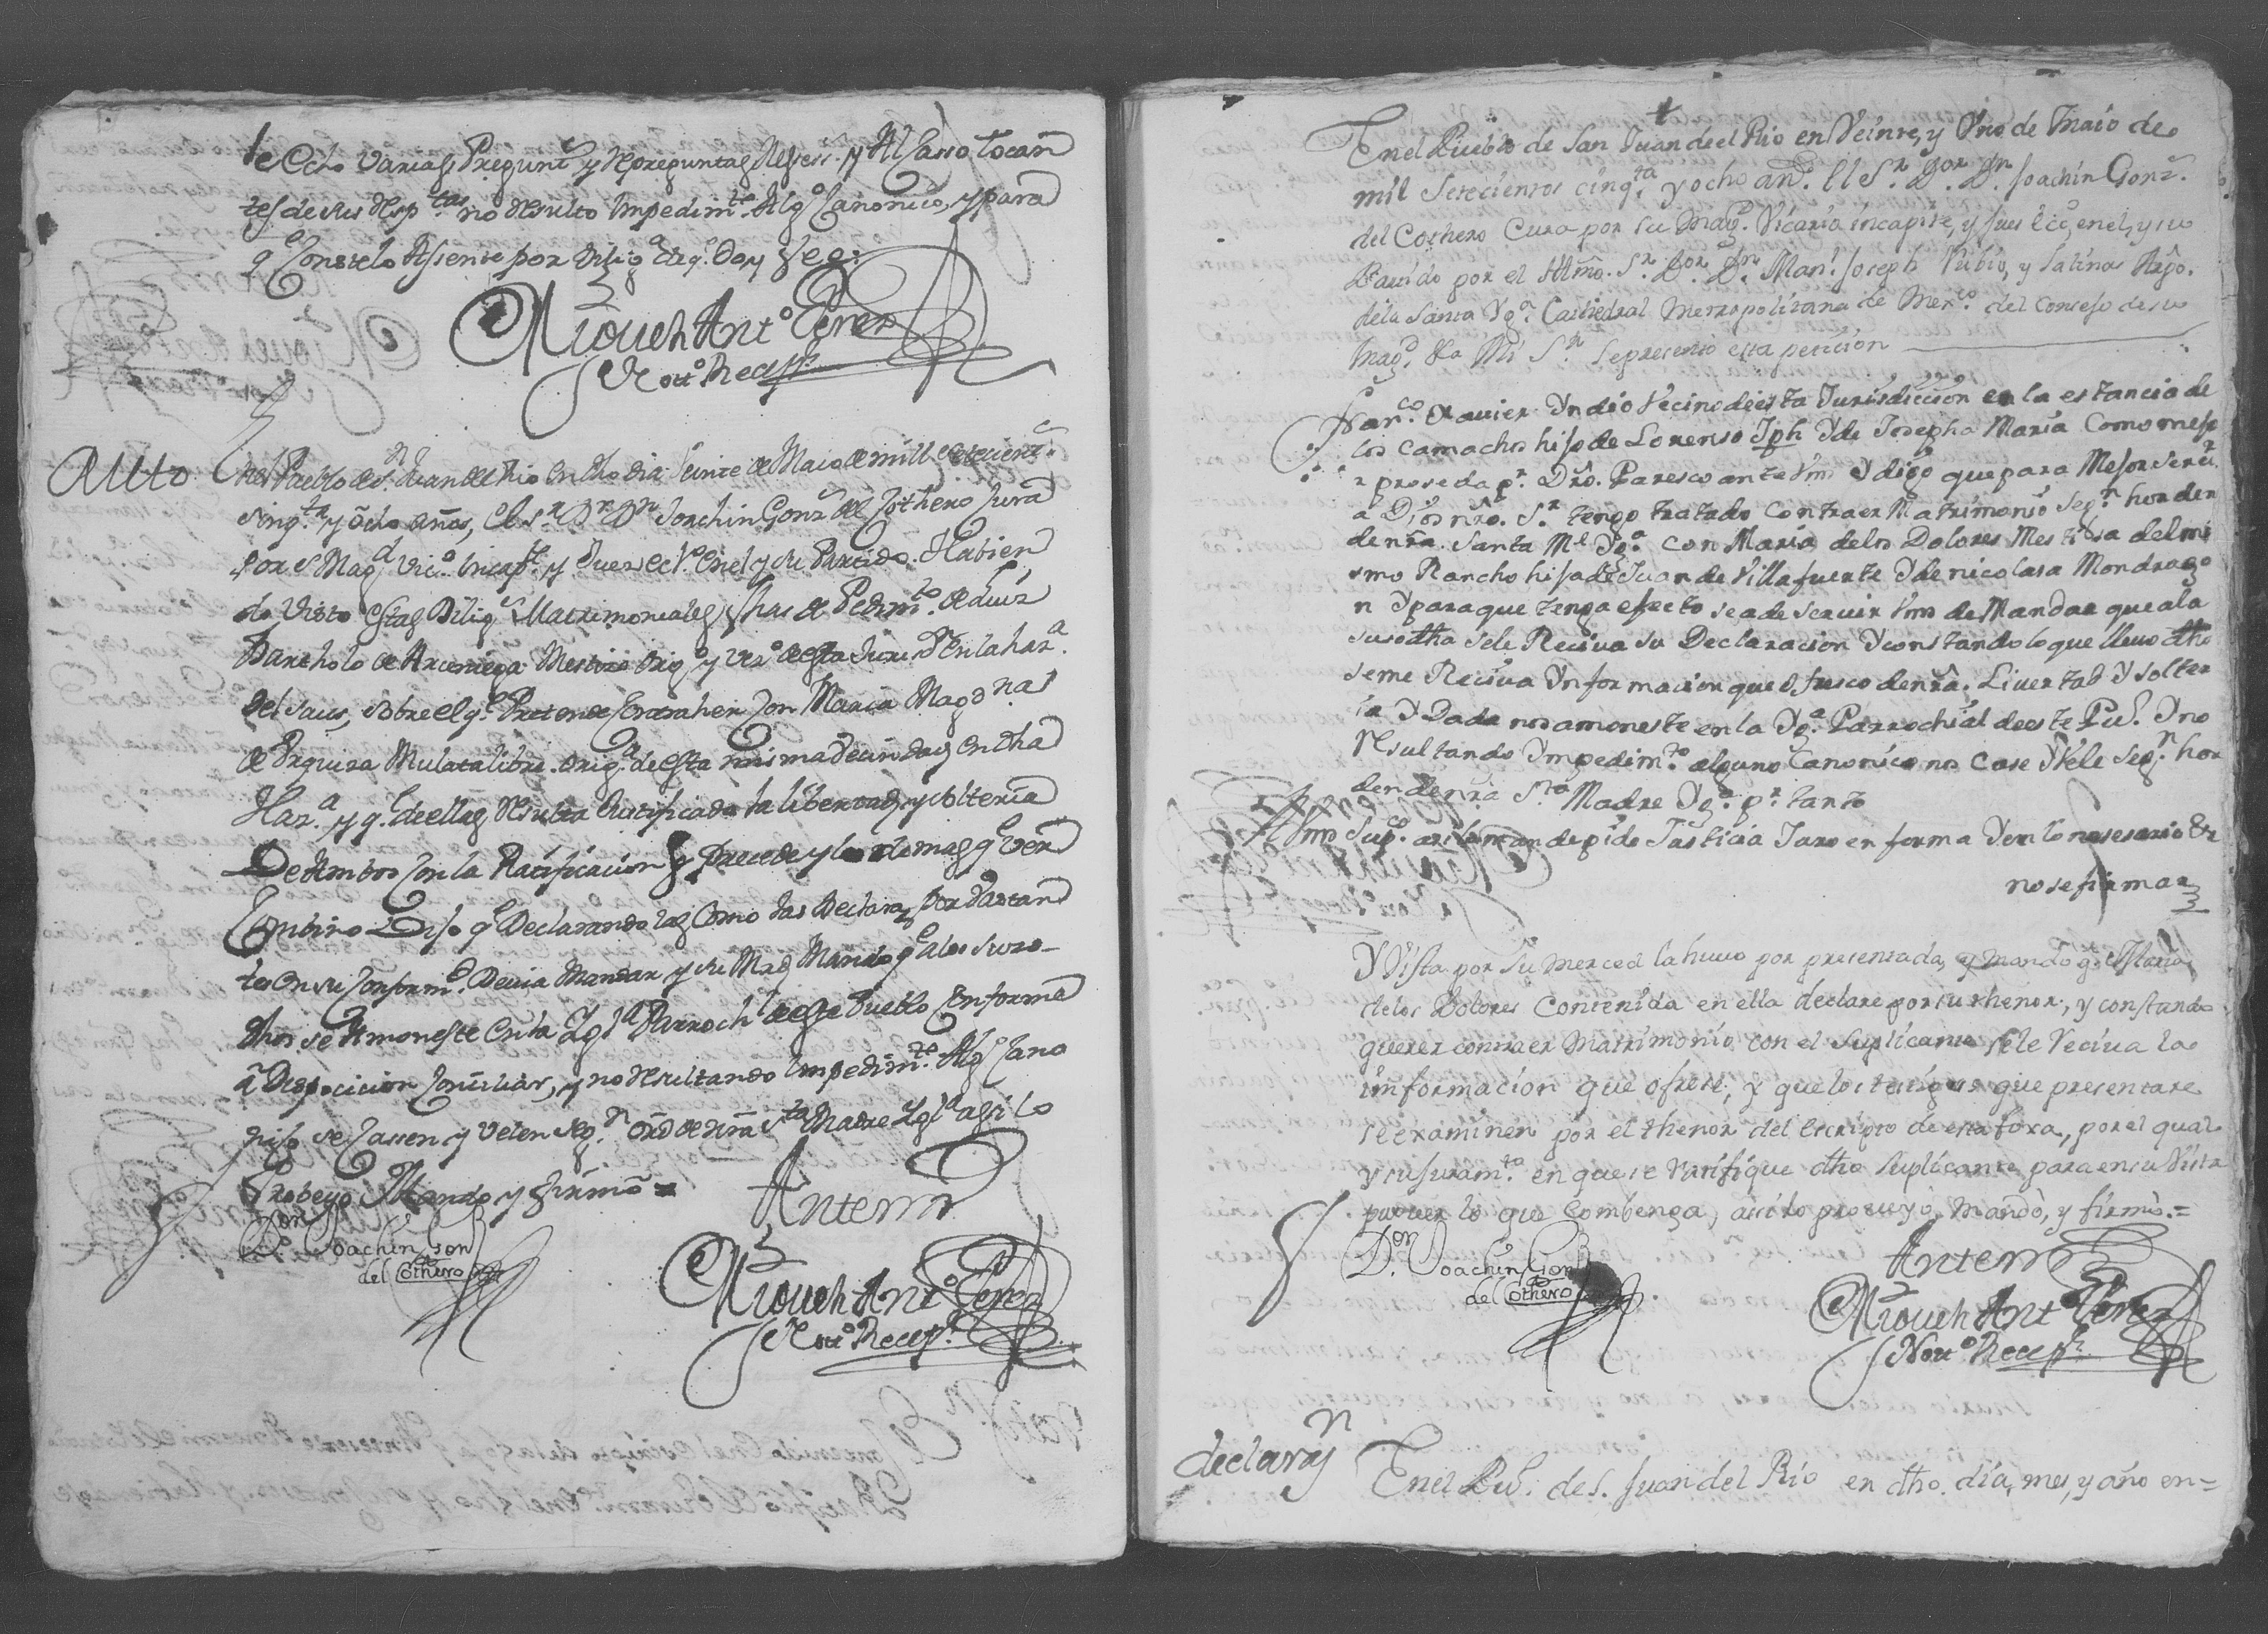 le echo varias Pregunt.s y Repreguntas Neses.s y Al Casso tocan
tes de sus Resp.tas no Resulto Impedim.to Alg.o Canonico, y para
q.e Conste lo Assente por Dilig.a de q.e Doy fee:
Miguel Ant.o Perez
Nott.o Recep.r
Auto
en el Pueblo de S.n Juan del Rio en dho dia veinte de Maio de mill setecient.s
sinq.ta y ocho años, el S.r D.r D.n Joachin Gonz.s del Cothero Cura
Por S Mag.d Vic.o Incap.te y Juez ec.co en el y su Partido. Habien
do Visto estas Dilig.s Matrimoniales fhas de Pedim.to de Luis
Bartholo de Arciniega Mestizo orig.o y vez.o de esta Juris.n en la haz.a
del saus, sobre el q.e Pretende Contraher Con Maria Magd.na
de Mulata libre orig.a de esta misma vecindad en dha
Haz.a y q.e de ellas Resulta Justificada la libertad, y solteria
De Ambos Con la Ratificacion q.e Precede y lo demas q.e Ver
Combino Dijo q.e Declarandolas Como las Declara Por Bastan
tes en su Conform.d Devia Mandar y su Mrd Mando q.e a los suso-
dhos se Amoneste en la Igl.a Parroch.l de este Pueblo Enforme
a Disposicion Conciliar, y no Resultando Impedim.to Alg.o Cano
nico se Cassen y velen seg.n ord de nra S.ta Madre Igl.a assi lo
Probeyo Mando y firmó =
D.or D.n Joachin Gonz
del Cothero
Antemi
Miguel Ant.o Perez
Nott.o Recep.r
En el Pueblo de San Juan de el Rio en Veinte, y Uno de Maio de
mil Setecientos cinq.ta y ocho an.s el S.r D.or D.n Joachin Gonz.s
del Cothero Cura por su Mag.d Vicario incapite, y Juez ecc.o en el, y su
Partido por el Illmo. S.r D.or D.n Man.l Joseph Rubio, y Salinas Arpo.
de la Santa Yg.a Cathedral Metropolitana de Mex.co del Consejo de su
Mag.d &a Mi S.r se presento esta peticion
Fran.co Xavier Yndio Vecino de esta Jurisdiccion en la estancia de
los Camachos hijo de Lorenso Jph Y de Josepha Maria Como mejo
r proseda p.r Dro. Paresco ante Vmd Y digo que para Mejor servir
a Dios nro. S.r tengo tratado Contraer Matrimonio Seg.n horden
de nra. Santa M.e Yg.a con Maria de los Dolores Mestisa del mi
smo Rancho hija de Juan de Villafuerte Y de nicolasa Mondrago
n Y para que tenga efecto sea de servir Vmd de Mandar que a la
susodha se le Reciva su Declaracion Y constando lo que llevo dho
se me Reciva Ynformacion que ofresco de nra. Livertad Y solter
ia Y Dada nos amoneste en la Yg.a Parrochial de este Pu.o Y no
Resultando Ympedim.to alguno Canonico nos Case Y Vele Seg.n hor
den de nra S.ta Madre Yg.a p.r tanto
A Vmd Sup.co asi lo mande pido Justicia Juro en forma Y en lo nesesario &
no se firmar
Y Vista por Su merced la huvo por presentada, y mando q.e Maria
de los Dolores Contenida en ella declare por su thenor, y constando
querer contraer Matrimonio con el Suplicante se le reciva la
imformacion que ofrese, y que los testigos que presentare
se examinen por el thenor del escripto de esta foxa, por el qual
y su juram.to en que se ratifique dho suplicante para en su vista
proveer lo que Combenga, assi lo proveyó, Mandò, y firmò.=
D.or D.n Joachin Gonz
del Cothero
Antemi
Miguel Ant.o Perez
Nott.o Recep.r
declaraz.n
En el Pu.o de S. Juan del Rio en dho. dia, mes, y año en=